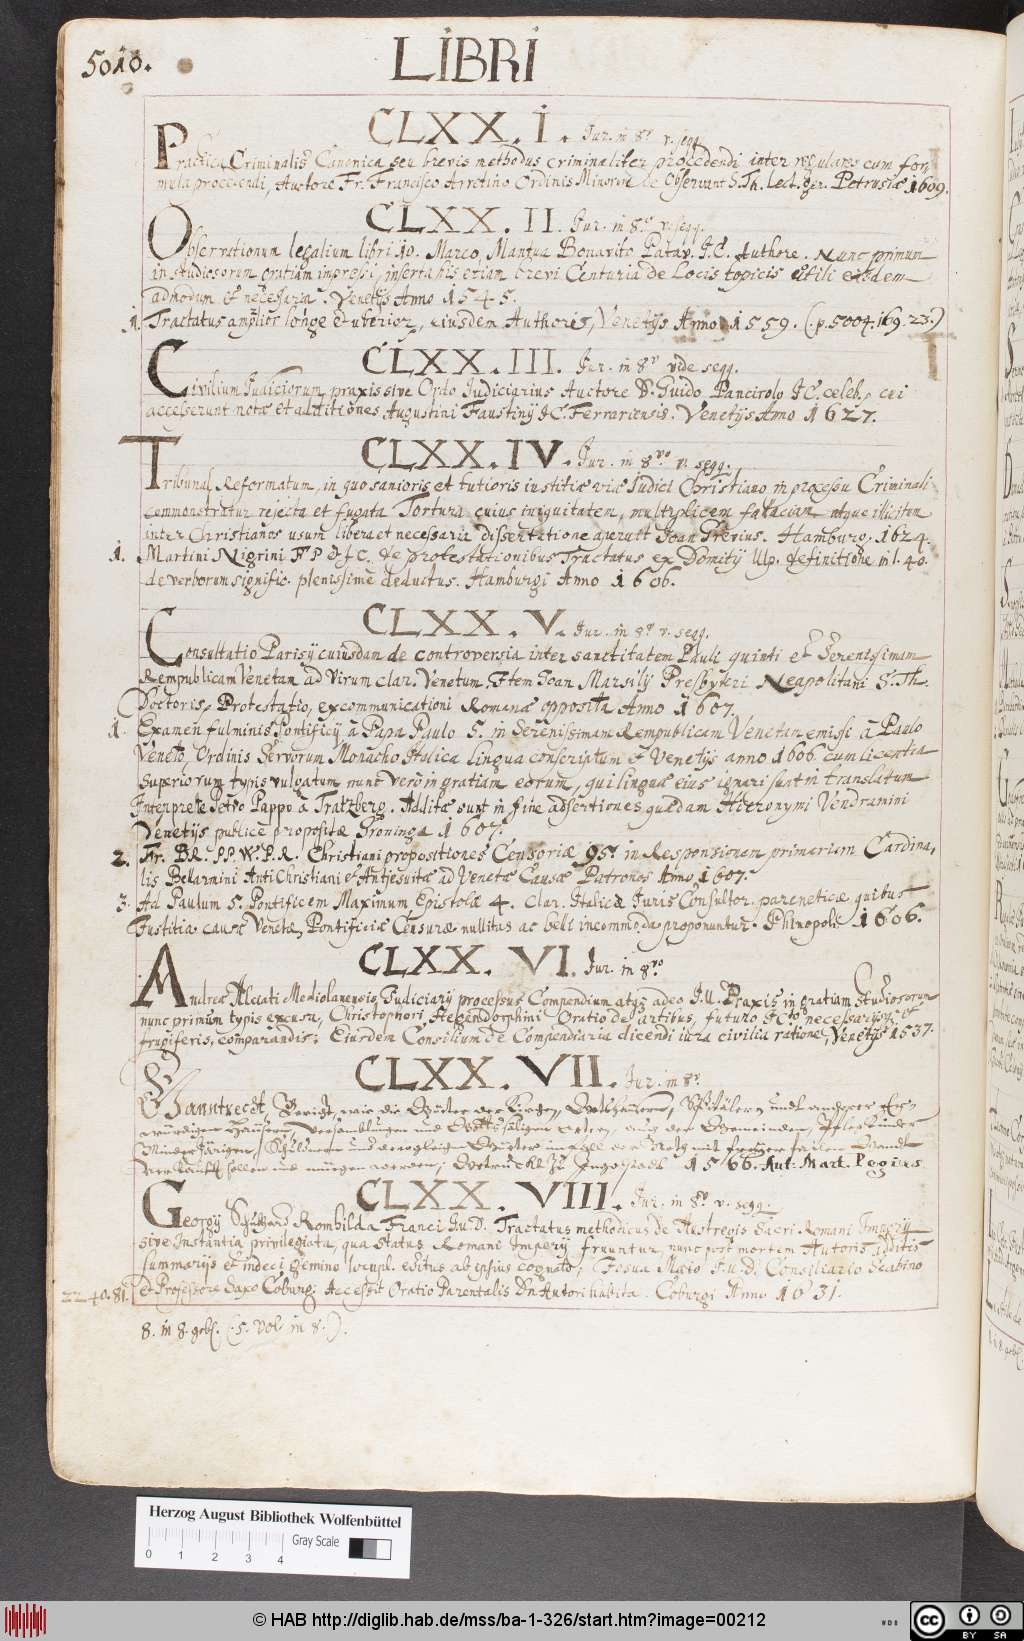 5010.
LIBRI
CLXX. I. Jur. in 8º v. seqq.
Practica Criminalis Canonica seu brevis methodus criminaliter procedendi inter regulares cum for,
mula procedendi, Auctore Fr. Francisco Arretino Ordinis Minorum de Observant. S. Th. Lect. Petrusiæ 1609.
CLXX. II. Jur. in 8º v. seqq.
Observationum legalium libri 10. Marco Mantua Bonavito Patav. J.C. Authore. Nunc primum
in studiosorum gratiam impressi, inserta his etiam brevi Centuria de Locis topicis utili eisdem
admodum et necessaria. Venetijs Anno 1545.
1. Tractatus amplior longe et uberior, eiusdem Authoris, Venetijs Anno 1559. (.p. 5004. 169. 23.)
CLXX. III. Jur. in 8º vide seqq.
Civilium Judiciorum praxis sive Ordo Judiciarius Auctore D. Guido Pancirolo J.C. celeb. cui
accesserunt notæ et additiones Augustini Faustinij J.C. Ferrariensis. Venetijs Anno 1627.
CLXX. IV. Jur. in 8vo v. seqq.
Tribunal Reformatum, in quo sanioris et tutioris iustitiæ via Judici Christiano in processu Criminali
commonstratur rejecta et fugata Tortura cuius iniquitatem, multiplicem fallaciam atque illicitum
inter Christianos usum libera et necessaria dissertatione aperuit Joan Grevius. Hamburg. 1624.
1. Martini Nigrini de protestationibus Tractatus ex Domitij Ulp. definitione in l. 40.
de verborum signific. plenissime deductus. Hamburgi Anno 1606.
CLXX. V. Jur. in 8º v. seqq.
Consultatio Parisij cuiusdam de controversia inter sanctitatem Pauli quinti et Serenissimam
Rempublicam Venetam ad Virum clar. Venetum. Item Joan Marsilij Presbyteri Neapolitani S. Th.
Doctoris Protestatio, excommunicationi Romanæ opposita Anno 1607.
1. Examen fulminis Pontificij à Papa Paulo 5. in Serenissimam Rempublicam Venetam emissi à Paulo
Veneto, Ordinis Servorum Monacho Italica lingua conscriptum et Venetijs anno 1606. cum licentia
superiorum typis vulgatum nunc vero in gratiam eorum, qui linguæ eius ignari sunt in translatum
Interprete Petro Pappo à Tratzberg. Additæ sunt in fine assertiones quædam Hieronymi Vendramini
Venetijs publicè propositæ Groninga 1607.
2. Fr. BR. P.P. W.P.R. Christiani propositiones Censoriæ 95. in Responsionem primarium Cardina,
lis Belarmini AntiChristiani et Antjesuitæ ad Venetæ Causæ Patronos Anno 1607.
3. Ad Paulum 5. Pontificem Maximum Epistolæ 4. Clar. Italiæ Juris Consultor. pareneticæ quibus
Iustitia causæ Venetæ, Pontificiæ Censuræ nullitas ac belli incommoda proponuntur. Rhinopoli 1606.
CLXX. VI. Jur. in 8vo
Andreæ Alciati Mediolanensis, Judiciarij processus Compendium atque adeo J.U. Praxis in gratiam Studiosorum
nunc primum typis excusa, Christophori Hegendorphini Oratio de artibus, futuro JCto necessarijs et
frugiferis, comparandis; Eiusdem Consilium de Compendiaria dicendi iura civilia ratione, Venetijs 1537.
CLXX. VII. Jur. in 8º.
Bannbrecht, Bericht, wie die Güter der Kirchen, Gotshäusern, Spitälern undt anderer Ehr,
würdigen Häusern, Versamblungen und Gottseligen orten, auch der Gemeinden, Pflegkinder
Minderjärigen, Schuldnern und dergleichen
verkaufft sollen und mügen werden, Getruckt zu Ingolstadt 1566. Aut: Mart. Pegius
CLXX. VIII. Jur. in 8º v. seqq.
Georgij Schuhard Romhilda Franci J.u.D. Tractatus methodicus de Austregis Sacri Romani Imperij
sive Instantia privilegiata, qua status Romani Imperij fruuntur, nunc post mortem Autoris additis
summarijs et indeci gemino locupl. editus ab ipsius cognato, Josua Maio J.u.D. Consiliario Scabino
et Professore Saxo Coburg; Accessit Oratio Parentalis Dn Autori habita. Coburgi Anno 1631.
2240.81.
8. in 8. gebl. (.5. Vol. in 8.).
Herzog August Bibliothek Wolfenbüttel
Gray Scale
0 1 2 3 4
© HAB http://diglib.hab.de/mss/ba-1-326/start.htm?image=00212
WDB
cc BY SA